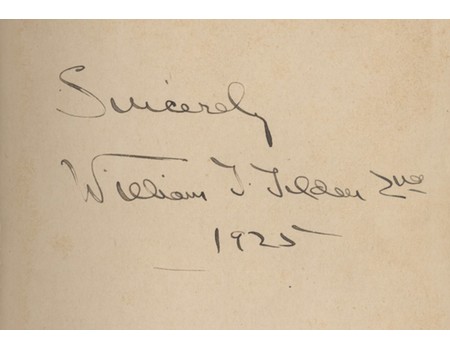 Sincerely
William T. Tilden 2nd
1925